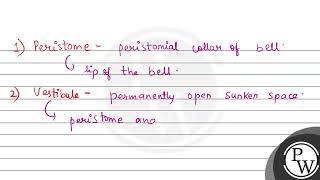 1) Peristome - peristomial collar of bell.
↳ lip of the bell.
2) Vestibule - permanently open sunken space.
↳ peristome ano
PW